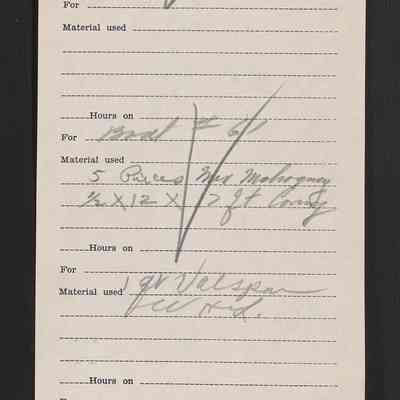 For
Material used
Hours on
For Boat # 61
Material used
5 Pieces Mex Mahogany
1/2 X 12 X 17 ft Long
Hours on
For
Material used 1 qt Valspar
Hours on